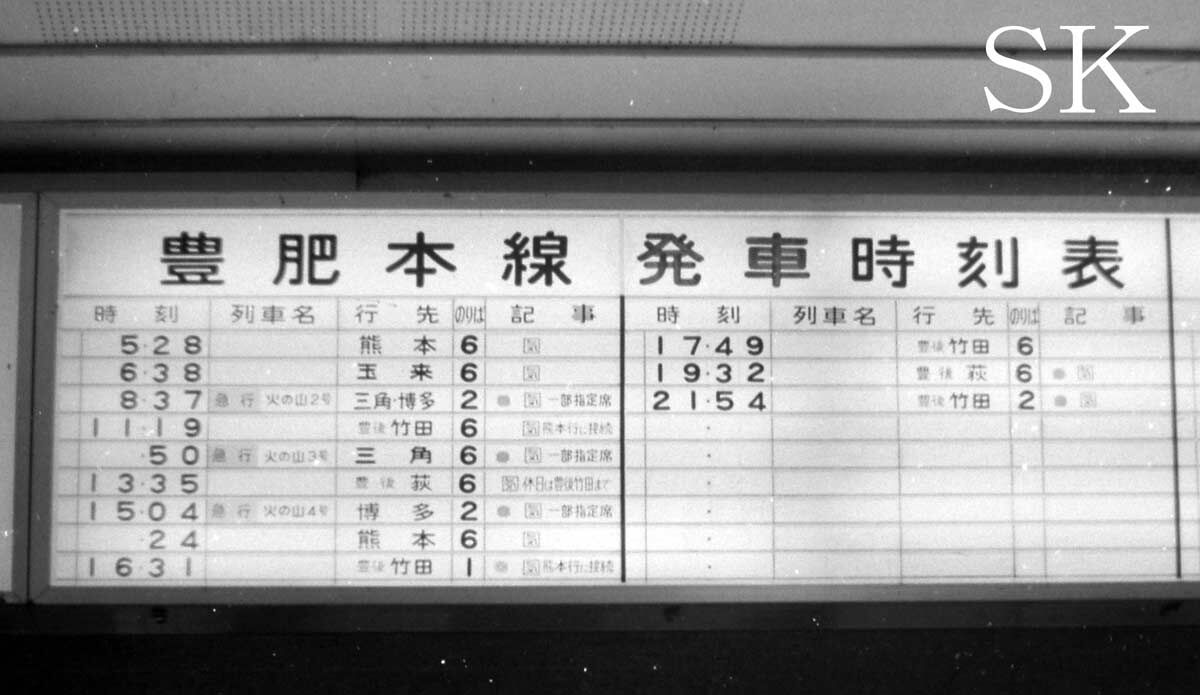 SK
豊肥本線 発車時刻表
時刻 列車名 行先 のりば 記事
5・28 熊本 6 気
6・38 玉来 6 気
8・37 急行 火の山2号 三角・博多 2 ● 気 一部指定席
11・19 豊後竹田 6 気 熊本行に接続
・50 急行 火の山3号 三角 6 ● 気 一部指定席
13・35 豊後荻 6 気 休日は豊後竹田まで
15・04 急行 火の山4号 博多 2 ● 気 一部指定席
・24 熊本 6 気
16・31 豊後竹田 1 ● 気 熊本行に接続
時刻 列車名 行先 のりば 記事
17・49 豊後竹田 6
19・32 豊後荻 6 ● 気
21・54 豊後竹田 2 ● 気